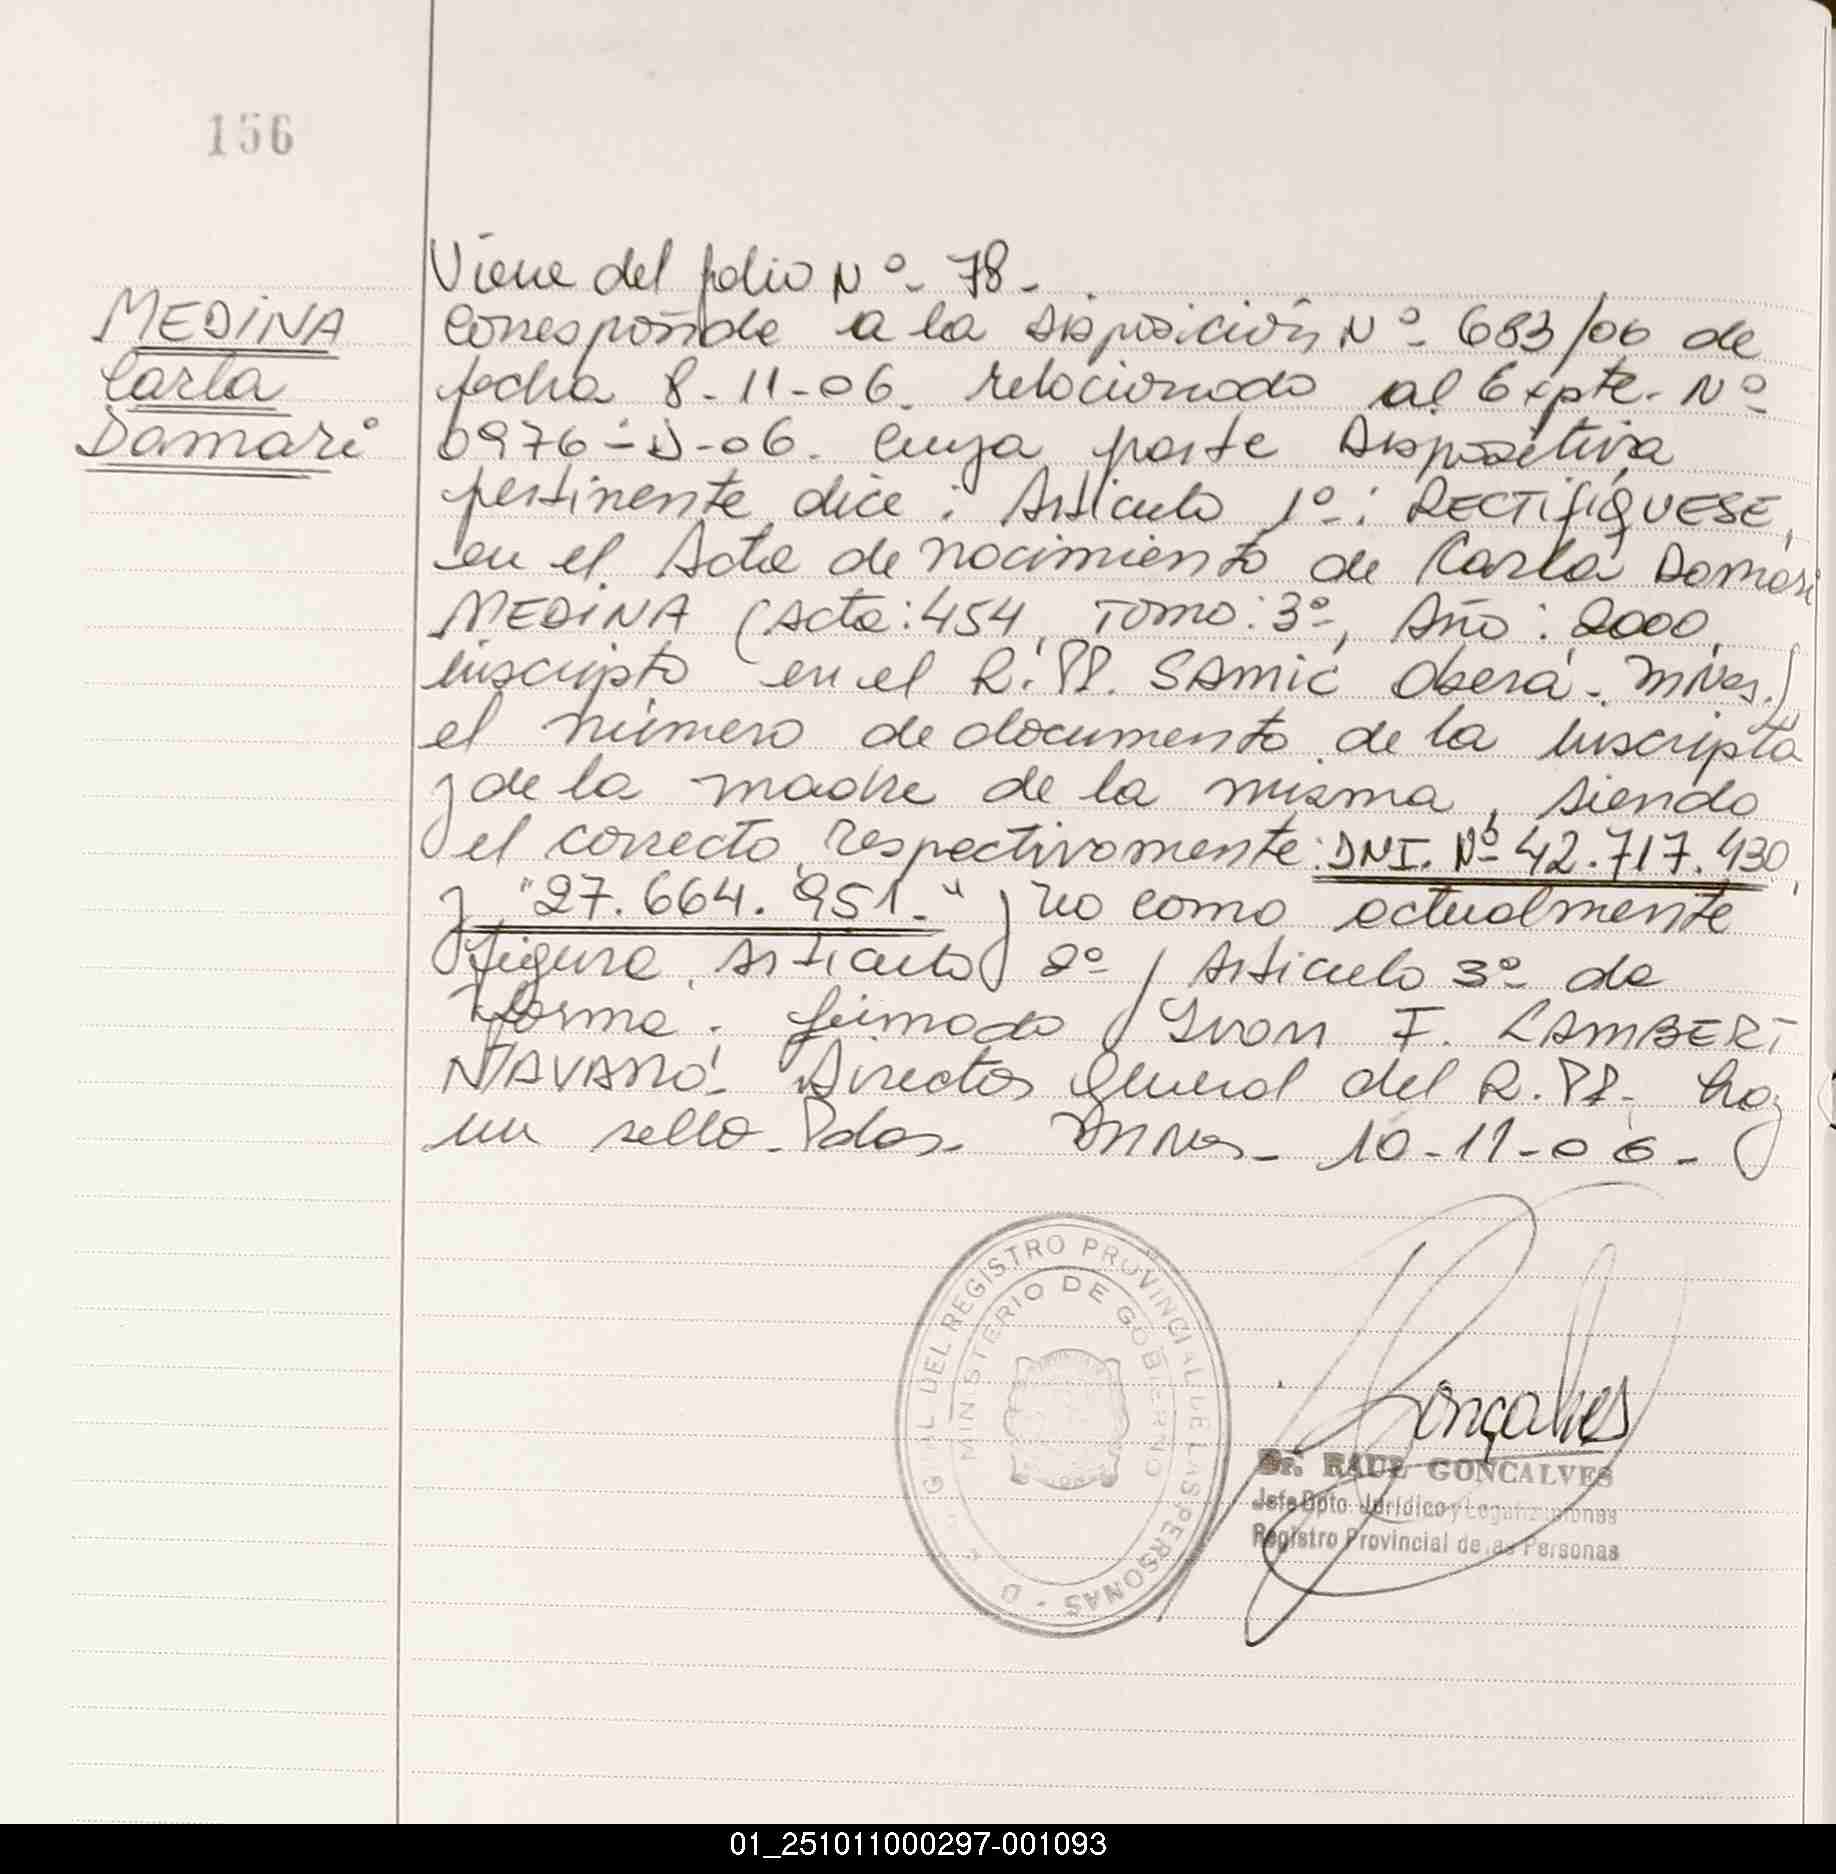 156
MEDINA
Carla
Damari
Viene del folio Nº- 78-
Corresponde a la Disposición Nº- 683/06 de
fecha 8-11-06. relacionado al Expte. Nº-
0976-D-06. Cuya parte Dispositiva
pertinente dice: Artículo 1º-: RECTIFIQUESE,
en el Acta de nacimiento de Carla Damari
MEDINA (Acta: 454, Tomo: 3º-, Año: 2000,
inscripta en el R.PP. SAMIC Oberá. Mnes.)
el número de documento de la inscripta
y de la madre de la misma, siendo
el correcto, respectivamente: DNI. Nº 42.717.430,
y "27.664.951." y no como actualmente
figura. Artículo 2º- y Artículo 3º- de
forma. firmado Ivan F. LAMBERT
NAVARRO- Director General del R.PP. hay
un sello- Pdas- Mnes- 10-11-06-
DIR. GRAL. DEL REGISTRO PROVINCIAL DE LAS PERSONAS -
MINISTERIO DE GOBIERNO
Gonçalves
Dr. RAUL GONCALVES
Jefe Dpto. Jurídico y Legalizaciones
Registro Provincial de las Personas
01_251011000297-001093